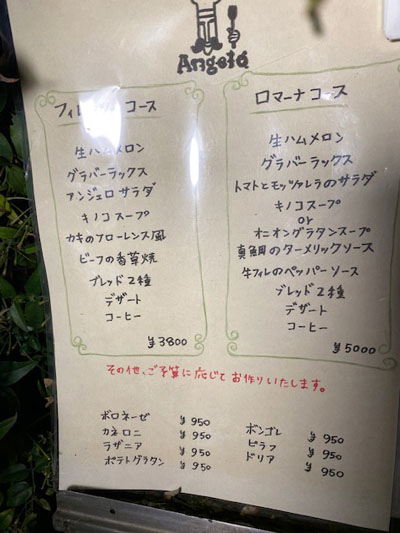 Angelo
フィレ コース
生ハムメロン
グラバーラックス
アンジェロサラダ
キノコスープ
カキのフローレンス風
ビーフの香草焼
ブレッド2種
デザート
コーヒー
¥3800
ロマーナコース
生ハムメロン
グラバーラックス
トマトとモッツァレラのサラダ
キノコスープ
or
オニオングラタンスープ
真鯛のターメリックソース
牛フィレのペッパーソース
ブレッド2種
デザート
コーヒー
¥5000
その他、ご予算に応じてお作りいたします。
ボロネーゼ ¥950
カネロニ ¥950
ラザニア ¥950
ポテトグラタン ¥950
ボンゴレ ¥950
ピラフ ¥950
ドリア ¥950